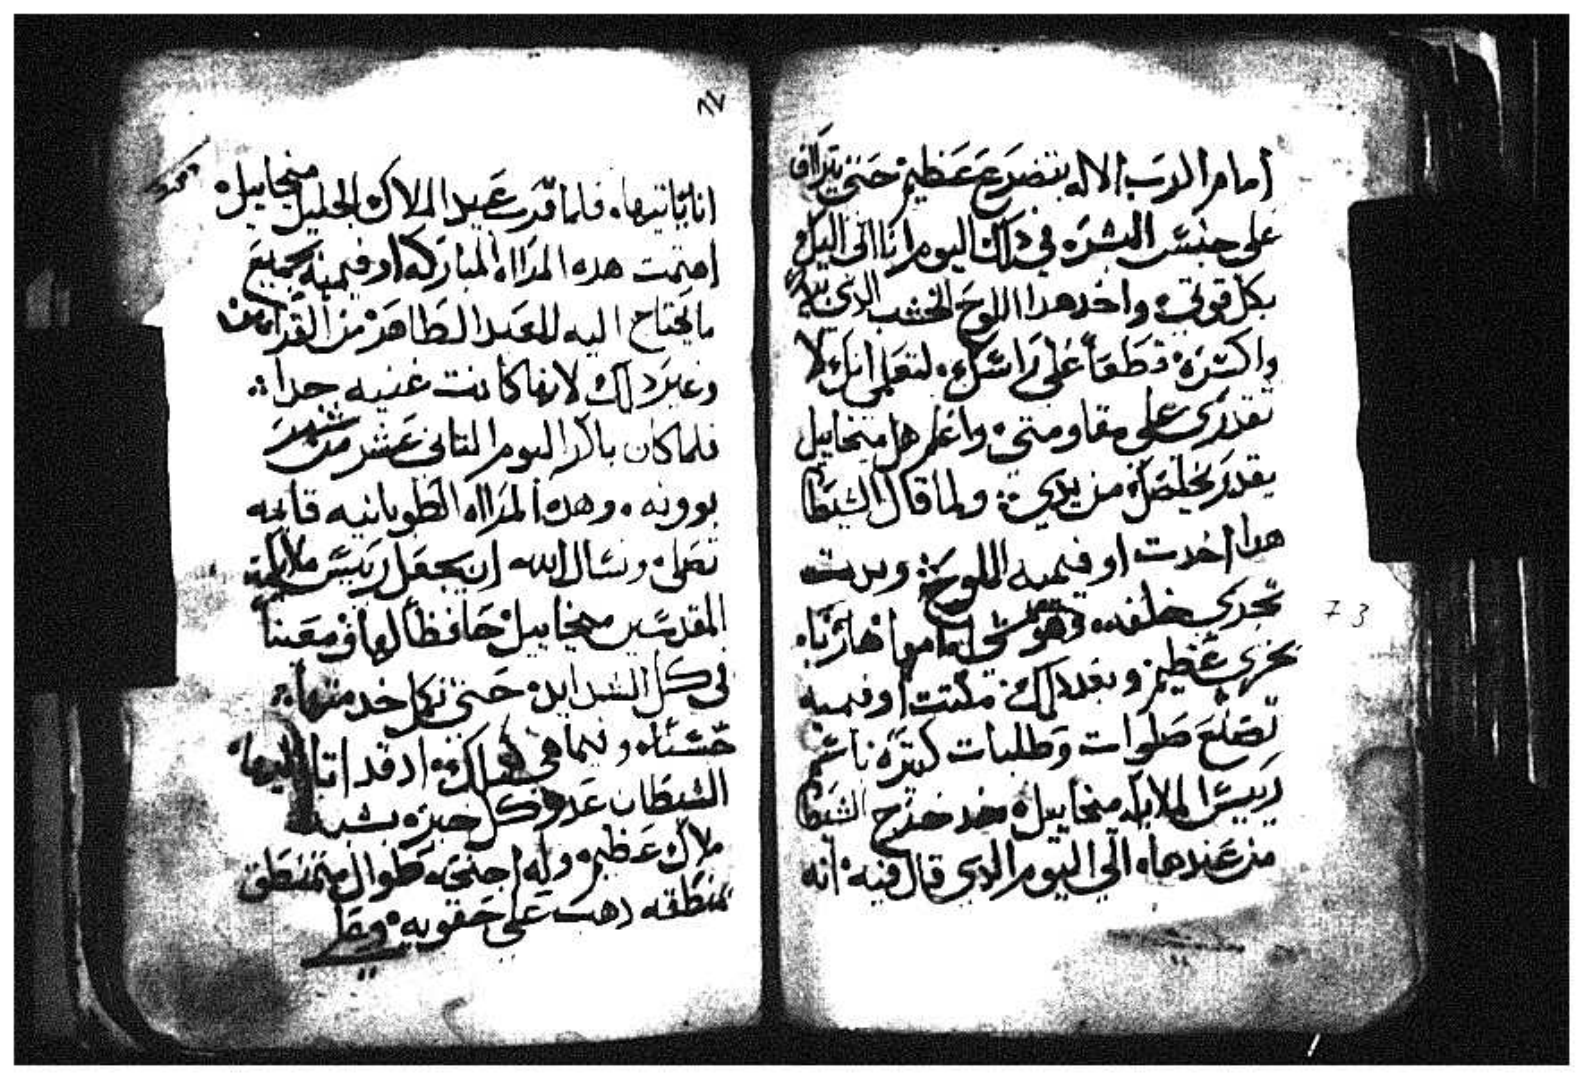 امام الرب الاله بتضرع عظيم حتى يتراف
على جنس البشره في دلك اليوم انا اتى اليك
بكل قوتي واخد هدا اللوح الخشب الدي
واكسره قطعاً على راسك لتعلمي انك لا
تقدري على مقاومتي واعلم هل ميخاييل
يقدر يخلصك من يدي ولما قال الشيطا
هدا اخدت اوفيميه اللوح وبدت
تجري خلفه وهو امامها هارباً
بخزي عظيم وبعد دلك مكتت اوفيميه
تصنع صلوات وطلبات كتيره باسم
رييس الملايكه ميخاييل خرج الشيطا
من عندها الي اليوم الدي قال فيه انه
٦٧
انا ياتيها فلما قرب عيد الملاك الجليل ميخاييل
اهتمت هده المراه المباركه اوفيميه بجميع
ما يحتاج اليه للعيد الطاهر من القرابين
وغير دلك لانها كانت غنيه جدا
فلما كان باكر اليوم التاني عشر من شهر
بوونه وهده المراه الطوبانيه قايمه
تصلي وتسال الله ان يجعل رييس ملايكته
المقدسين ميخاييل حافظاً لها ومعيناً
في كل الشدايد حتى تكمل خدمتها
حسناً وبينما هي هناك اد قد اتا اليها
الشيطان عدو كل خير بشبه
ملاك عظيم وله اجنحه طوال متمنطق
بمنطقه دهب على حقويه وعلي
73